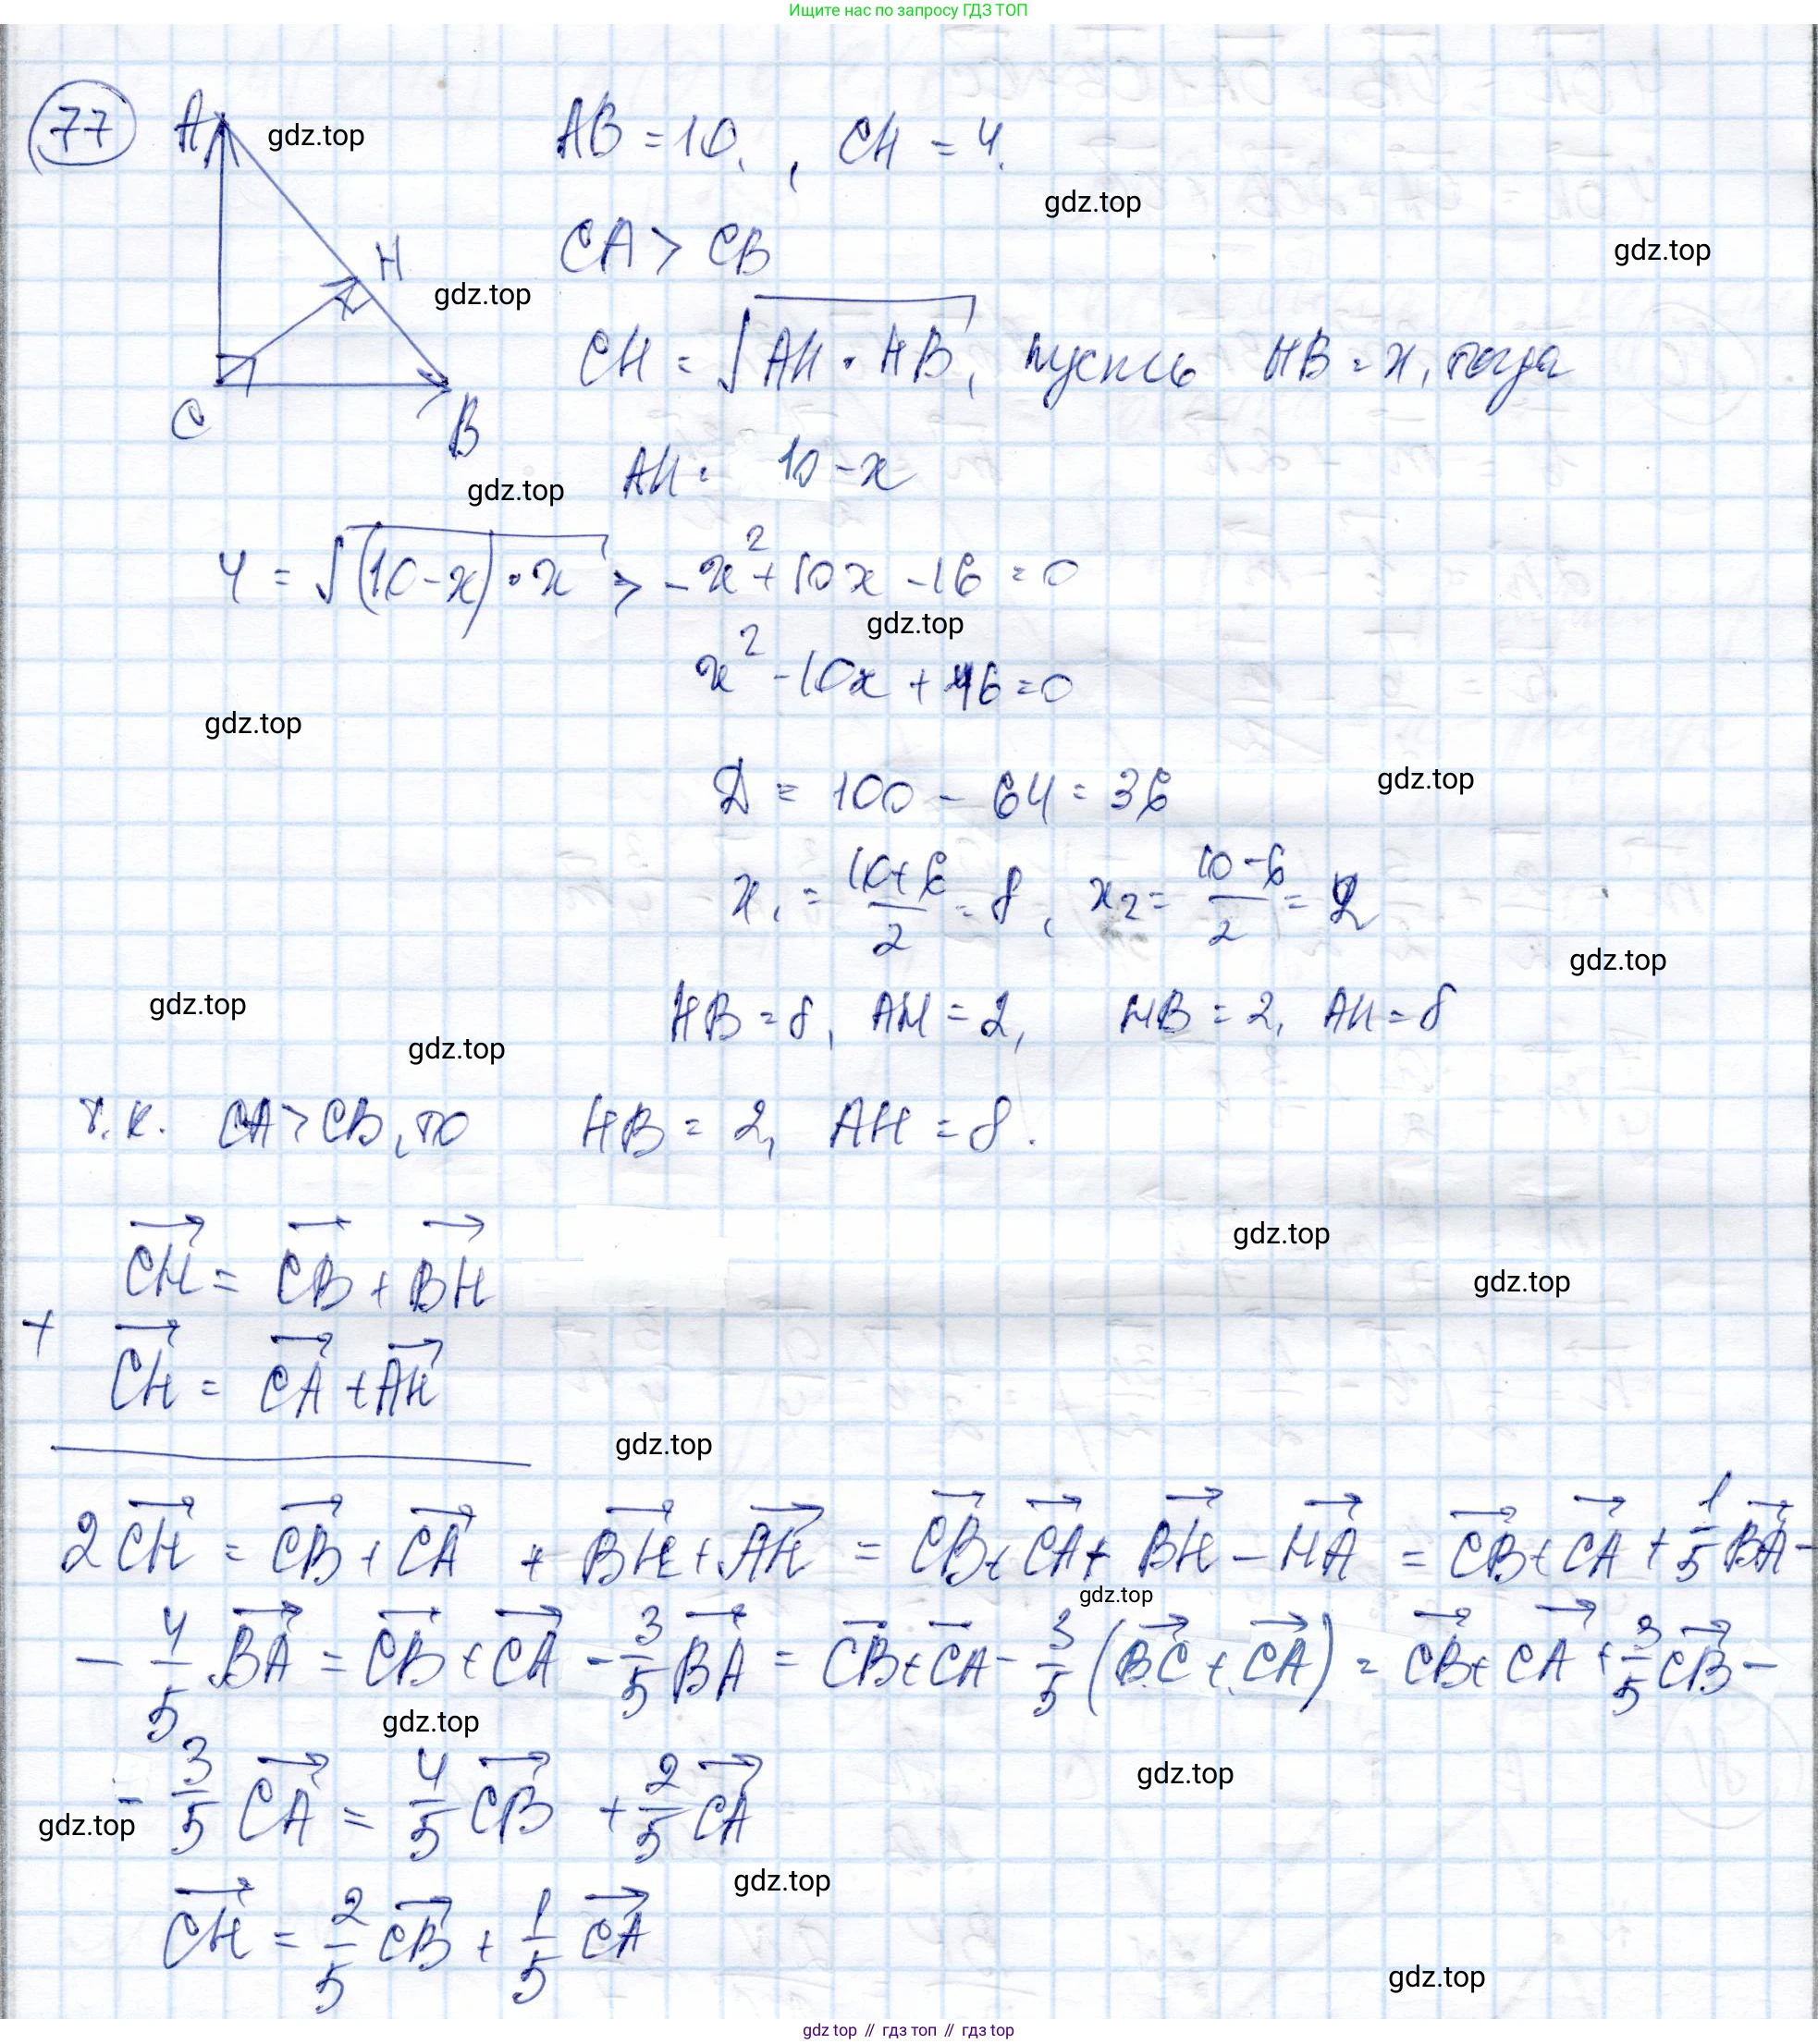 Ищите нас по запросу ГДЗ ТОП
77 A gdz.top AB = 10, CH = 4.
gdz.top
CA > CB gdz.top
H
gdz.top
CH = √(AH · HB), пусть HB = x, тогда
C B
AH = 10 - x
gdz.top
4 = √((10-x) · x) > -x² + 10x - 16 = 0
gdz.top
x² - 10x + 16 = 0
gdz.top
D = 100 - 64 = 36 gdz.top
x₁ = (10+6)/2 = 8, x₂ = (10-6)/2 = 2
gdz.top
gdz.top HB = 8, AH = 2, HB = 2, AH = 8
gdz.top
т.к. CA > CB, то HB = 2, AH = 8.
gdz.top
→CH = →CB + →BH gdz.top
+
→CH = →CA + →AH
gdz.top
2→CH = →CB + →CA + →BH + →AH = →CB + →CA + →BH - →HA = →CB + →CA + 1/5 →BA -
gdz.top
- 4/5 →BA = →CB + →CA - 3/5 →BA = →CB + →CA - 3/5 (→BC + →CA) = →CB + →CA + 3/5 →CB -
gdz.top
- 3/5 →CA = 4/5 →CB + 2/5 →CA gdz.top
gdz.top
gdz.top
→CH = 2/5 →CB + 1/5 →CA
gdz.top
gdz top // гдз топ // гдз top